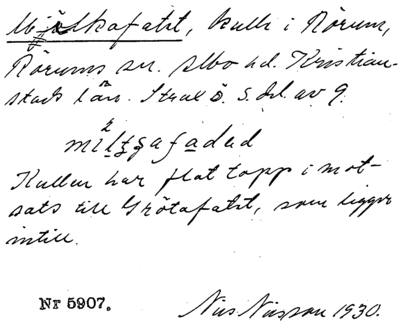 Mjölkafatet, kulle i Rörum,
Rörums sn. Albo hd. Kristian-
stads län. Strax ö. s. del av 9.
Kullen har flat topp i mot-
sats till Grötafatet, som ligger
intill.
Nr 5907. Nils Nilsson 1930.